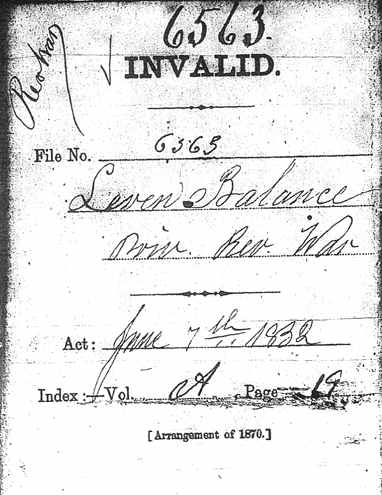 6563.
Rev War
INVALID.
File No. 6563
Leven Balance
Priv. Rev. War
Act: June 7th 1832
Index:—Vol. A, Page 19
[Arrangement of 1870.]